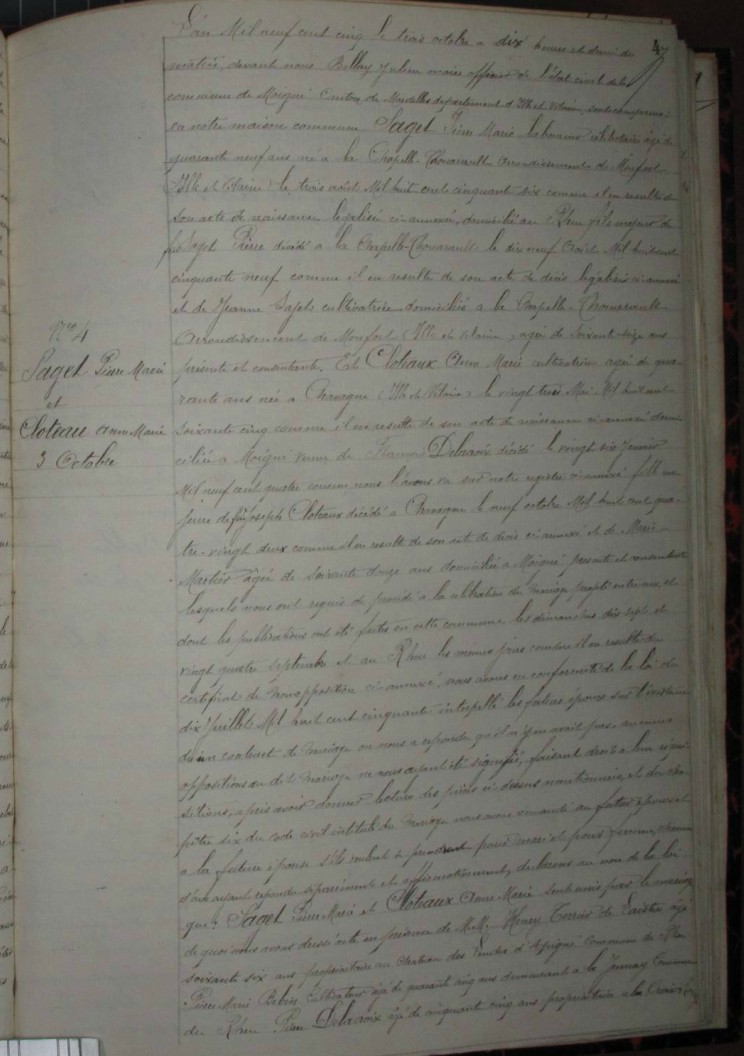 L'an Mil neuf cent cinq le trois octobre a dix heures et demi du
matin, devant nous Bellay Julien maire officier de l'état civil de la
commune de Moigné Canton de Mordelles departement d'Ille et Vilaine, sont comparus:
en notre maison commune Saget Pierre Marie célibataire âgé de
quarante neuf ans né a la Chapelle-Thouarault arrondissement de Monfort
Ille et Vilaine le trois août Mil huit cent cinquante six comme il en resulte de
son acte de naissance légalisé ci-annexé, domicilié au Rheu fils majeur de
feu Saget Pierre décédé a la Chapelle-Thouarault le dix neuf Mil huit cent
cinquante neuf comme il en resulte de son acte de décès légalisé ci-annexé
et de Jeanne cultivatrice domiciliée a la Chapelle-Thouarault
arrondissement de Monfort (Ille et Vilaine), agée de soixante seize ans
présente et consentante. Et Cloteaux Anne Marie agée de qua-
rante ans née a (Ille et Vilaine) le vingt trois Mai Mil huit cent
soixante cinq comme il en resulte de son acte de naissance ci-annexé domi-
ciliée a Moigné veuve de Delacroix décédé le vingt six Janvier
Mil neuf cent quatre comme nous l'avons vu sur notre registre ci-annexé fille ma-
jeure de feu Joseph Cloteaux décédé a le neuf octobre Mil huit cent qua-
tre-vingt deux comme il en resulte de son acte de décès ci-annexé et de Marie
âgée de soixante ans domiciliée a Moigné présente et consentante
lesquels nous ont requis de procédé a la célébration du mariage projeté entre eux et
dont les publications ont été faites en cette commune les dimanches dix sept et
vingt quatre septembre et au Rheu les memes jours comme il en resulte du
certificat de non opposition ci-annexé, nous avons en conformité de la loi du
dix Juillet Mil huit cent cinquante interpellé les futurs époux sur l'existence
d'un contract de mariage on nous a repondu qu'il n'y en avait pas. aucune
opposition au dit mariage ne nous ayant été signifiée, faisant droit a leur requi-
sitions, après avoir donner lecture des pièces ci-dessus mentionnées, et du cha-
pitre six du code civil intitulé du mariage nous avons demandé au futur époux et
a la future épouse s'ils veulent se prendrent pour mari et pour femme, chacun
d'eux ayant repondu séparément et affirmativement, declarons au nom de la loi
que: Saget Pierre Marie et Cloteaux Anne Marie sont unis par le mariage
de quoi nous avons dressé acte en présence de M.M. Henry de âgé
soixante six ans propriétaire au chateau des d'Apigné commune du Rheu
Pierre Marie cultivateur âgé de quarante cinq ans demeurant a la Commune
du Rheu Pierre Delacroix âgé de cinquante cinq ans propriétaire a la
No 4
Saget Pierre Marie
et
Cloteau anne Marie
3 Octobre